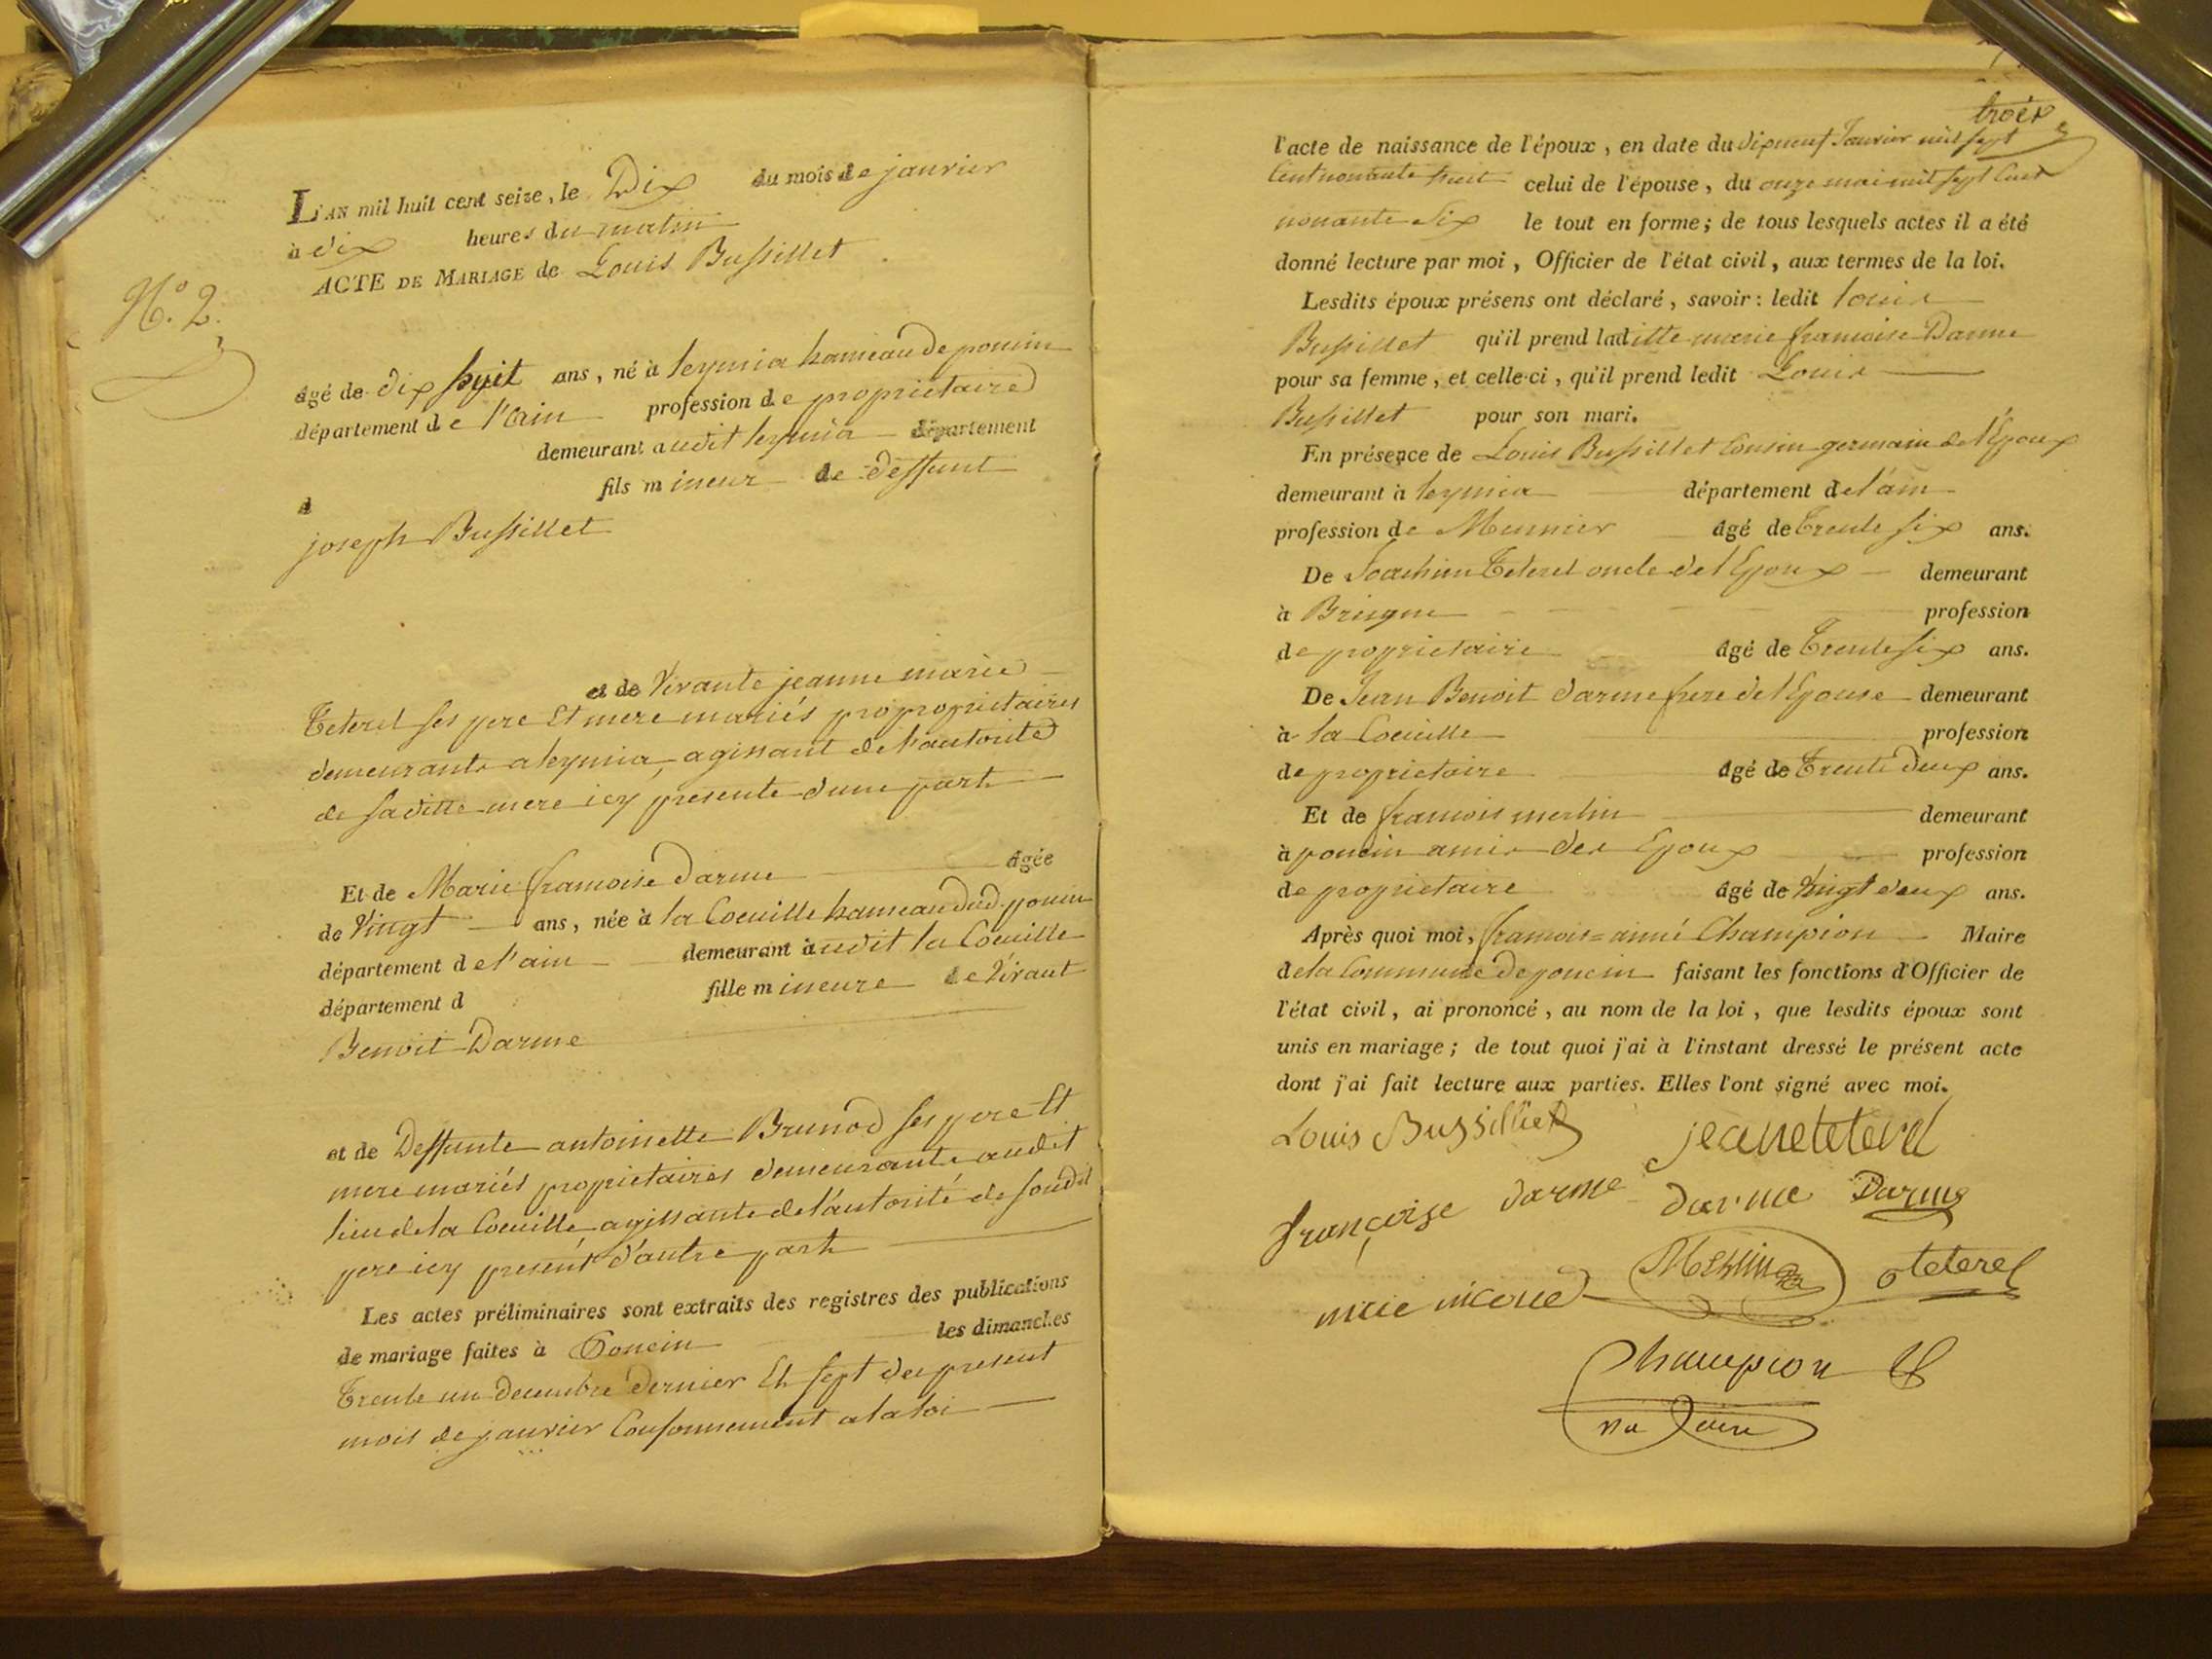 L'AN mil huit cent seize, le Dix du mois de janvier
à dix heures du matin
ACTE DE MARIAGE de Louis Bussillet
N.° 2.
âgé de dix huit ans, né à leymia hameau de poncin
département de l'Ain profession de propriétaire
demeurant audit leymia département
d fils mineur de deffunt
joseph Bussillet
et de vivante jeanne marie
Teterel ses pere Et mere mariés proproprietaires
demeurants a leymia, agissant de l'autorité
de saditte mere icy presente d'une part
Et de Marie francoise Darme âgée
de vingt ans, née à la Coeuille hameau dud. poncin
département de l'ain demeurant audit la Coeuille
département d fille mineure de vivant
Benoit Darme
et de Deffunte antoinette Brunod ses pere Et
mere mariés propriétaires demeurants audit
lieu de la Coeuille, agissante de l'autorité de soudit
pere icy present d'autre part
Les actes préliminaires sont extraits des registres des publications
de mariage faites à Poncin les dimanches
Trente un decembre dernier Et sept du present
mois de janvier Conformement a la loi
trois
l'acte de naissance de l'époux, en date du dixneuf Janvier mil sept
Cent nonante huit celui de l'épouse, du onze mai mil sept Cent
nonante Six le tout en forme; de tous lesquels actes il a été
donné lecture par moi, Officier de l'état civil, aux termes de la loi.
Lesdits époux présens ont déclaré, savoir: ledit Louis
Bussillet qu'il prend laditte marie francoise Darme
pour sa femme, et celle-ci, qu'il prend ledit Louis
Bussillet pour son mari.
En présence de Louis Bussillet Cousin germain de l'Epoux
demeurant à leymia département de l'ain
profession de Meunier âgé de trente six ans.
De Joachim Teterel oncle de l'Epoux demeurant
à profession
de proprietaire âgé de Trente six ans.
De Jean Benoit darme frere de l'Epouse demeurant
à la Coeuille profession
de proprietaire âgé de Trente deux ans.
Et de francois merlin demeurant
à poncin amis des Epoux profession
de propriétaire âgé de vingt deux ans.
Après quoi moi, francois=aimé Champion Maire
de la Commune de poncin faisant les fonctions d'Officier de
l'état civil, ai prononcé, au nom de la loi, que lesdits époux sont
unis en mariage; de tout quoi j'ai à l'instant dressé le présent acte
dont j'ai fait lecture aux parties. Elles l'ont signé avec moi.
Louis Bussilliet jeane teterel
françoise darme darme Darme
Merlin teterel
Champion